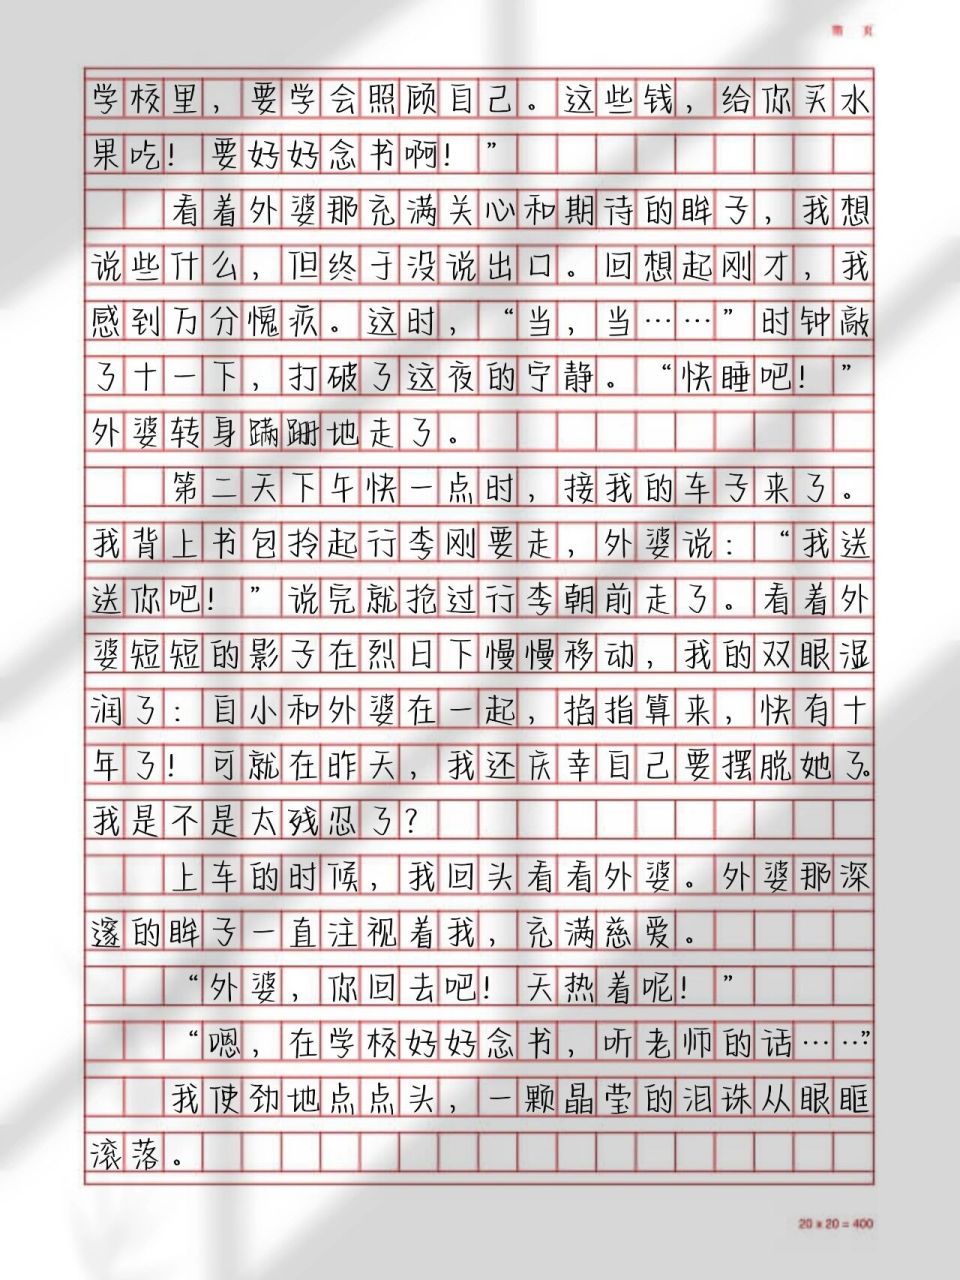 第 页
学校里，要学会照顾自己。这些钱，给你买水
果吃！要好好念书啊！”
看着外婆那充满关心和期待的眸子，我想
说些什么，但终于没说出口。回想起刚才，我
感到万分愧疚。这时，“当，当……”时钟敲
了十一下，打破了这夜的宁静。“快睡吧！”
外婆转身蹒跚地走了。
第二天下午快一点时，接我的车子来了。
我背上书包拎起行李刚要走，外婆说：“我送
送你吧！”说完就抢过行李朝前走了。看着外
婆短短的影子在烈日下慢慢移动，我的双眼湿
润了：自小和外婆在一起，掐指算来，快有十
年了！可就在昨天，我还庆幸自己要摆脱她了。
我是不是太残忍了？
上车的时候，我回头看看外婆。外婆那深
邃的眸子一直注视着我，充满慈爱。
“外婆，你回去吧！天热着呢！”
“嗯，在学校好好念书，听老师的话……”
我使劲地点点头，一颗晶莹的泪珠从眼眶
滚落。
20 x 20 = 400